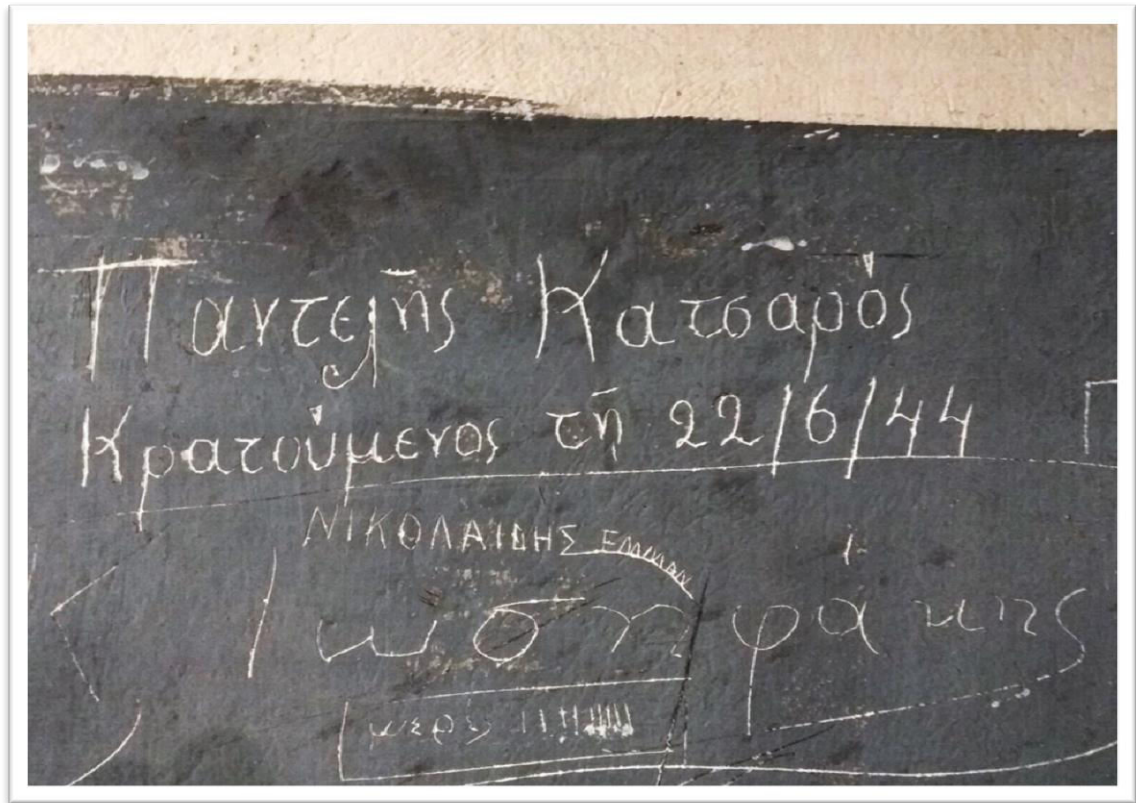 Παντελῆς Κατσαρός
Κρατούμενος τῆ 22/6/44
ΝΙΚΟΛΑΙΔΗΣ ΕΜΜΑΝ
Ιωσηφάκης